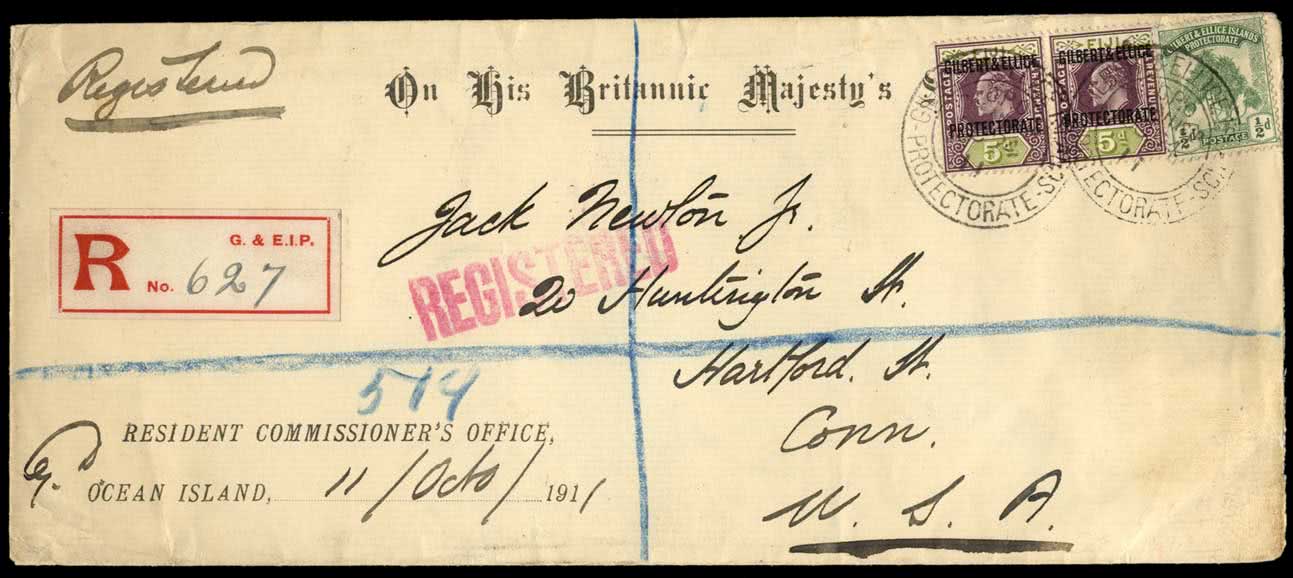 Registered
On His Britannic Majesty's
FIJI
GILBERT & ELLICE
POSTAGE
PROTECTORATE
5d
FIJI
GILBERT & ELLICE
POSTAGE
REVENUE
PROTECTORATE
5d
GILBERT & ELLICE ISLANDS
PROTECTORATE
½d
½d
POSTAGE
PROTECTORATE
Jack Newton Jr.
R
G. & E.I.P.
No. 627
REGISTERED
20 Huntington St.
Hartford. St.
514
Conn.
RESIDENT COMMISSIONER'S OFFICE,
OCEAN ISLAND, 11/Octo/ 1911
U. S. A.